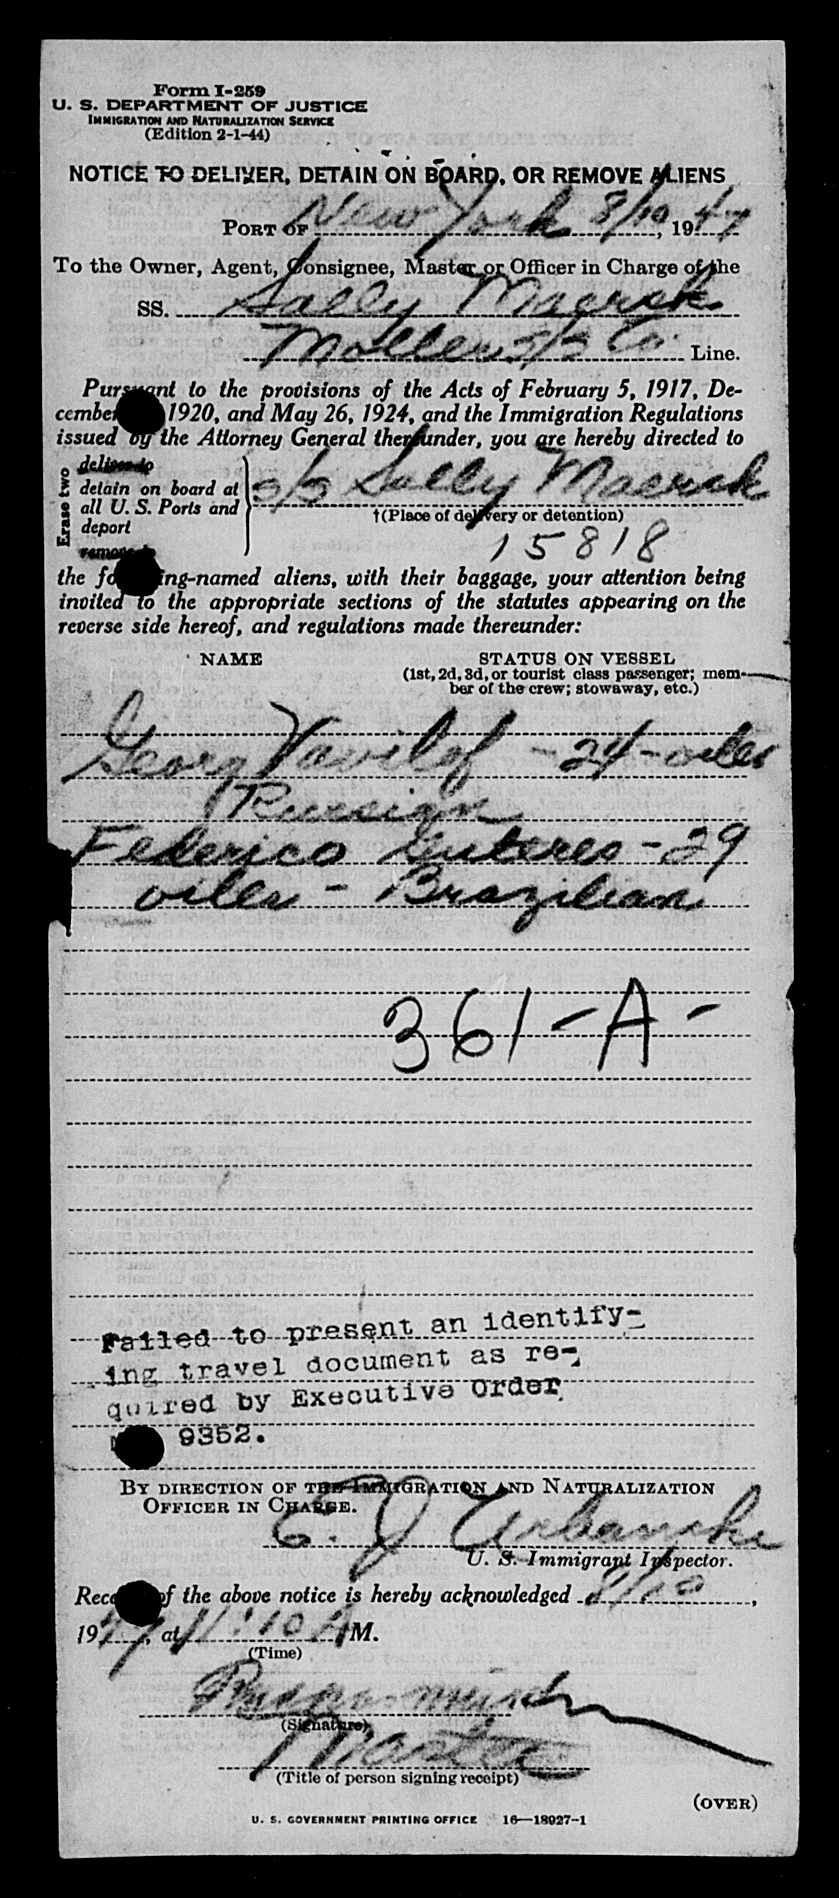 Form I-259
U. S. DEPARTMENT OF JUSTICE
IMMIGRATION AND NATURALIZATION SERVICE
(Edition 2-1-44)
NOTICE TO DELIVER, DETAIN ON BOARD, OR REMOVE ALIENS
PORT OF New York 8/10, 1947
To the Owner, Agent, Consignee, Master or Officer in Charge of the
SS. Sally Maersk
Moller S/S Co. Line.
Pursuant to the provisions of the Acts of February 5, 1917, De-
cember 1920, and May 26, 1924, and the Immigration Regulations
issued by the Attorney General thereunder, you are hereby directed to
Erase two
deliver to
detain on board at
all U. S. Ports and
deport
remove to
S/S Sally Maersk
†(Place of delivery or detention)
15818
the following-named aliens, with their baggage, your attention being
invited to the appropriate sections of the statutes appearing on the
reverse side hereof, and regulations made thereunder:
NAME STATUS ON VESSEL
(1st, 2d, 3d, or tourist class passenger; mem-
ber of the crew; stowaway, etc.)
Georg Vavilof - 24 - oiler
Russian
Federico - 29
oiler - Brazilian
361-A-
Failed to present an identify-
ing travel document as re-
quired by Executive Order
9352.
BY DIRECTION OF THE IMMIGRATION AND NATURALIZATION
OFFICER IN CHARGE.
E. J. Urbanske
U. S. Immigrant Inspector.
Receipt of the above notice is hereby acknowledged 8/10,
1947, at 11:10 A M.
(Time)
(Signature)
Master
(Title of person signing receipt)
(OVER)
U. S. GOVERNMENT PRINTING OFFICE 16—18927-1